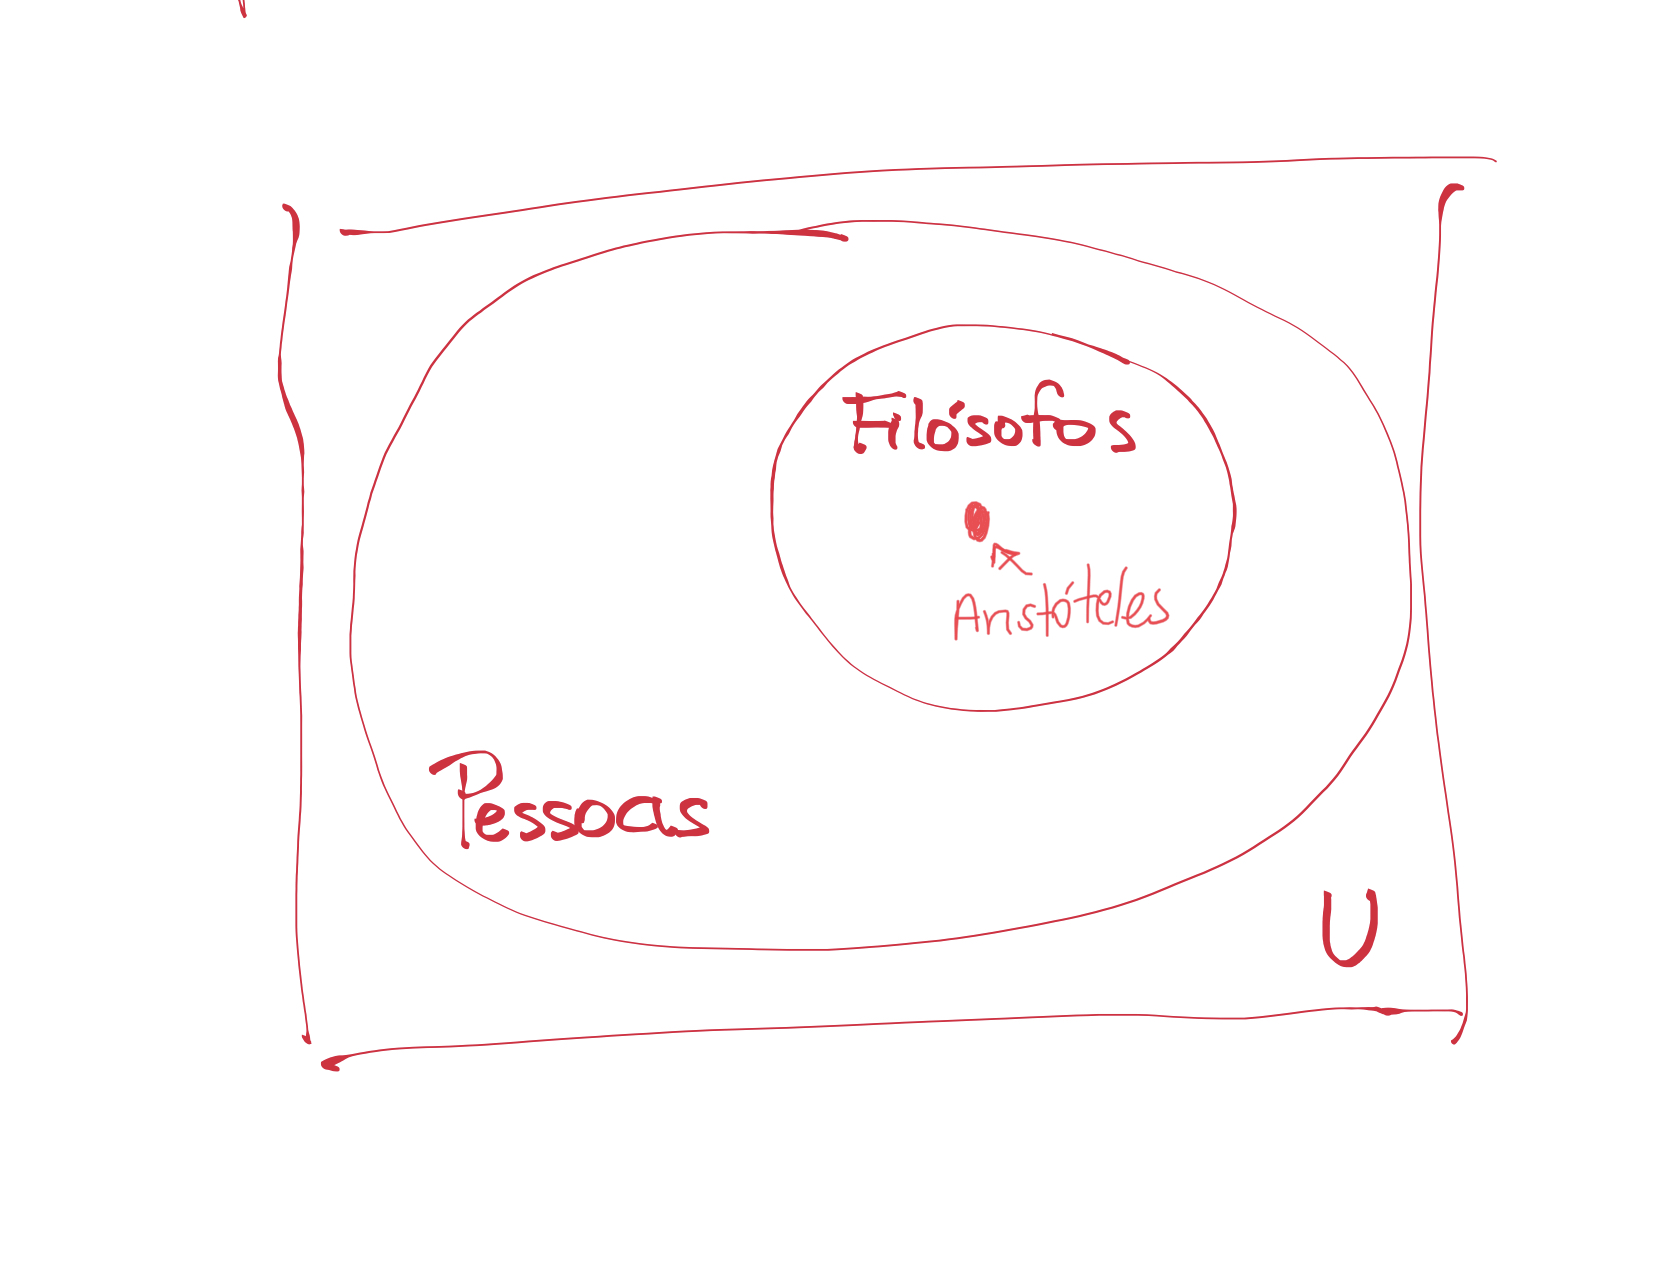 Filósofos
Aristóteles
Pessoas
U